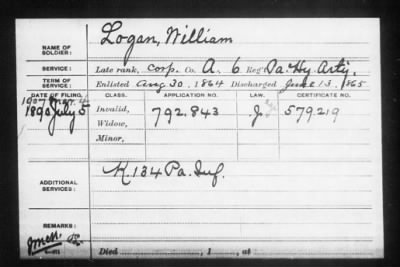 Logan, William
NAME OF SOLDIER:
SERVICE: Late rank, Corp. Co. A, 6 Reg't Pa. Hy. Arty.
TERM OF SERVICE: Enlisted Aug. 30, 1864 Discharged June 13, 1865
DATE OF FILING. CLASS. APPLICATION NO. LAW. CERTIFICATE NO.
1907
1890 July 5 Invalid, 792.843 J. 579,219
Widow,
Minor,
ADDITIONAL SERVICES: K. 134 Pa. Inf.
REMARKS:
Died , 1 , at